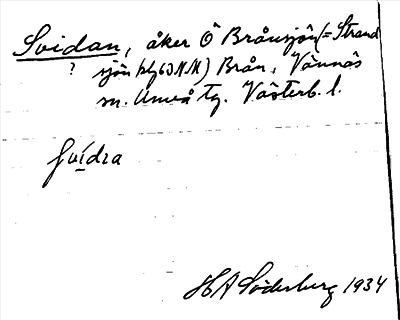 Svidan, åker Ö Brånsjön (= Strand
? sjön bl 63 NM) Brån, Vännäs
sn. Umeå tg. Västerb. l.
svídra
HA Söderberg 1934